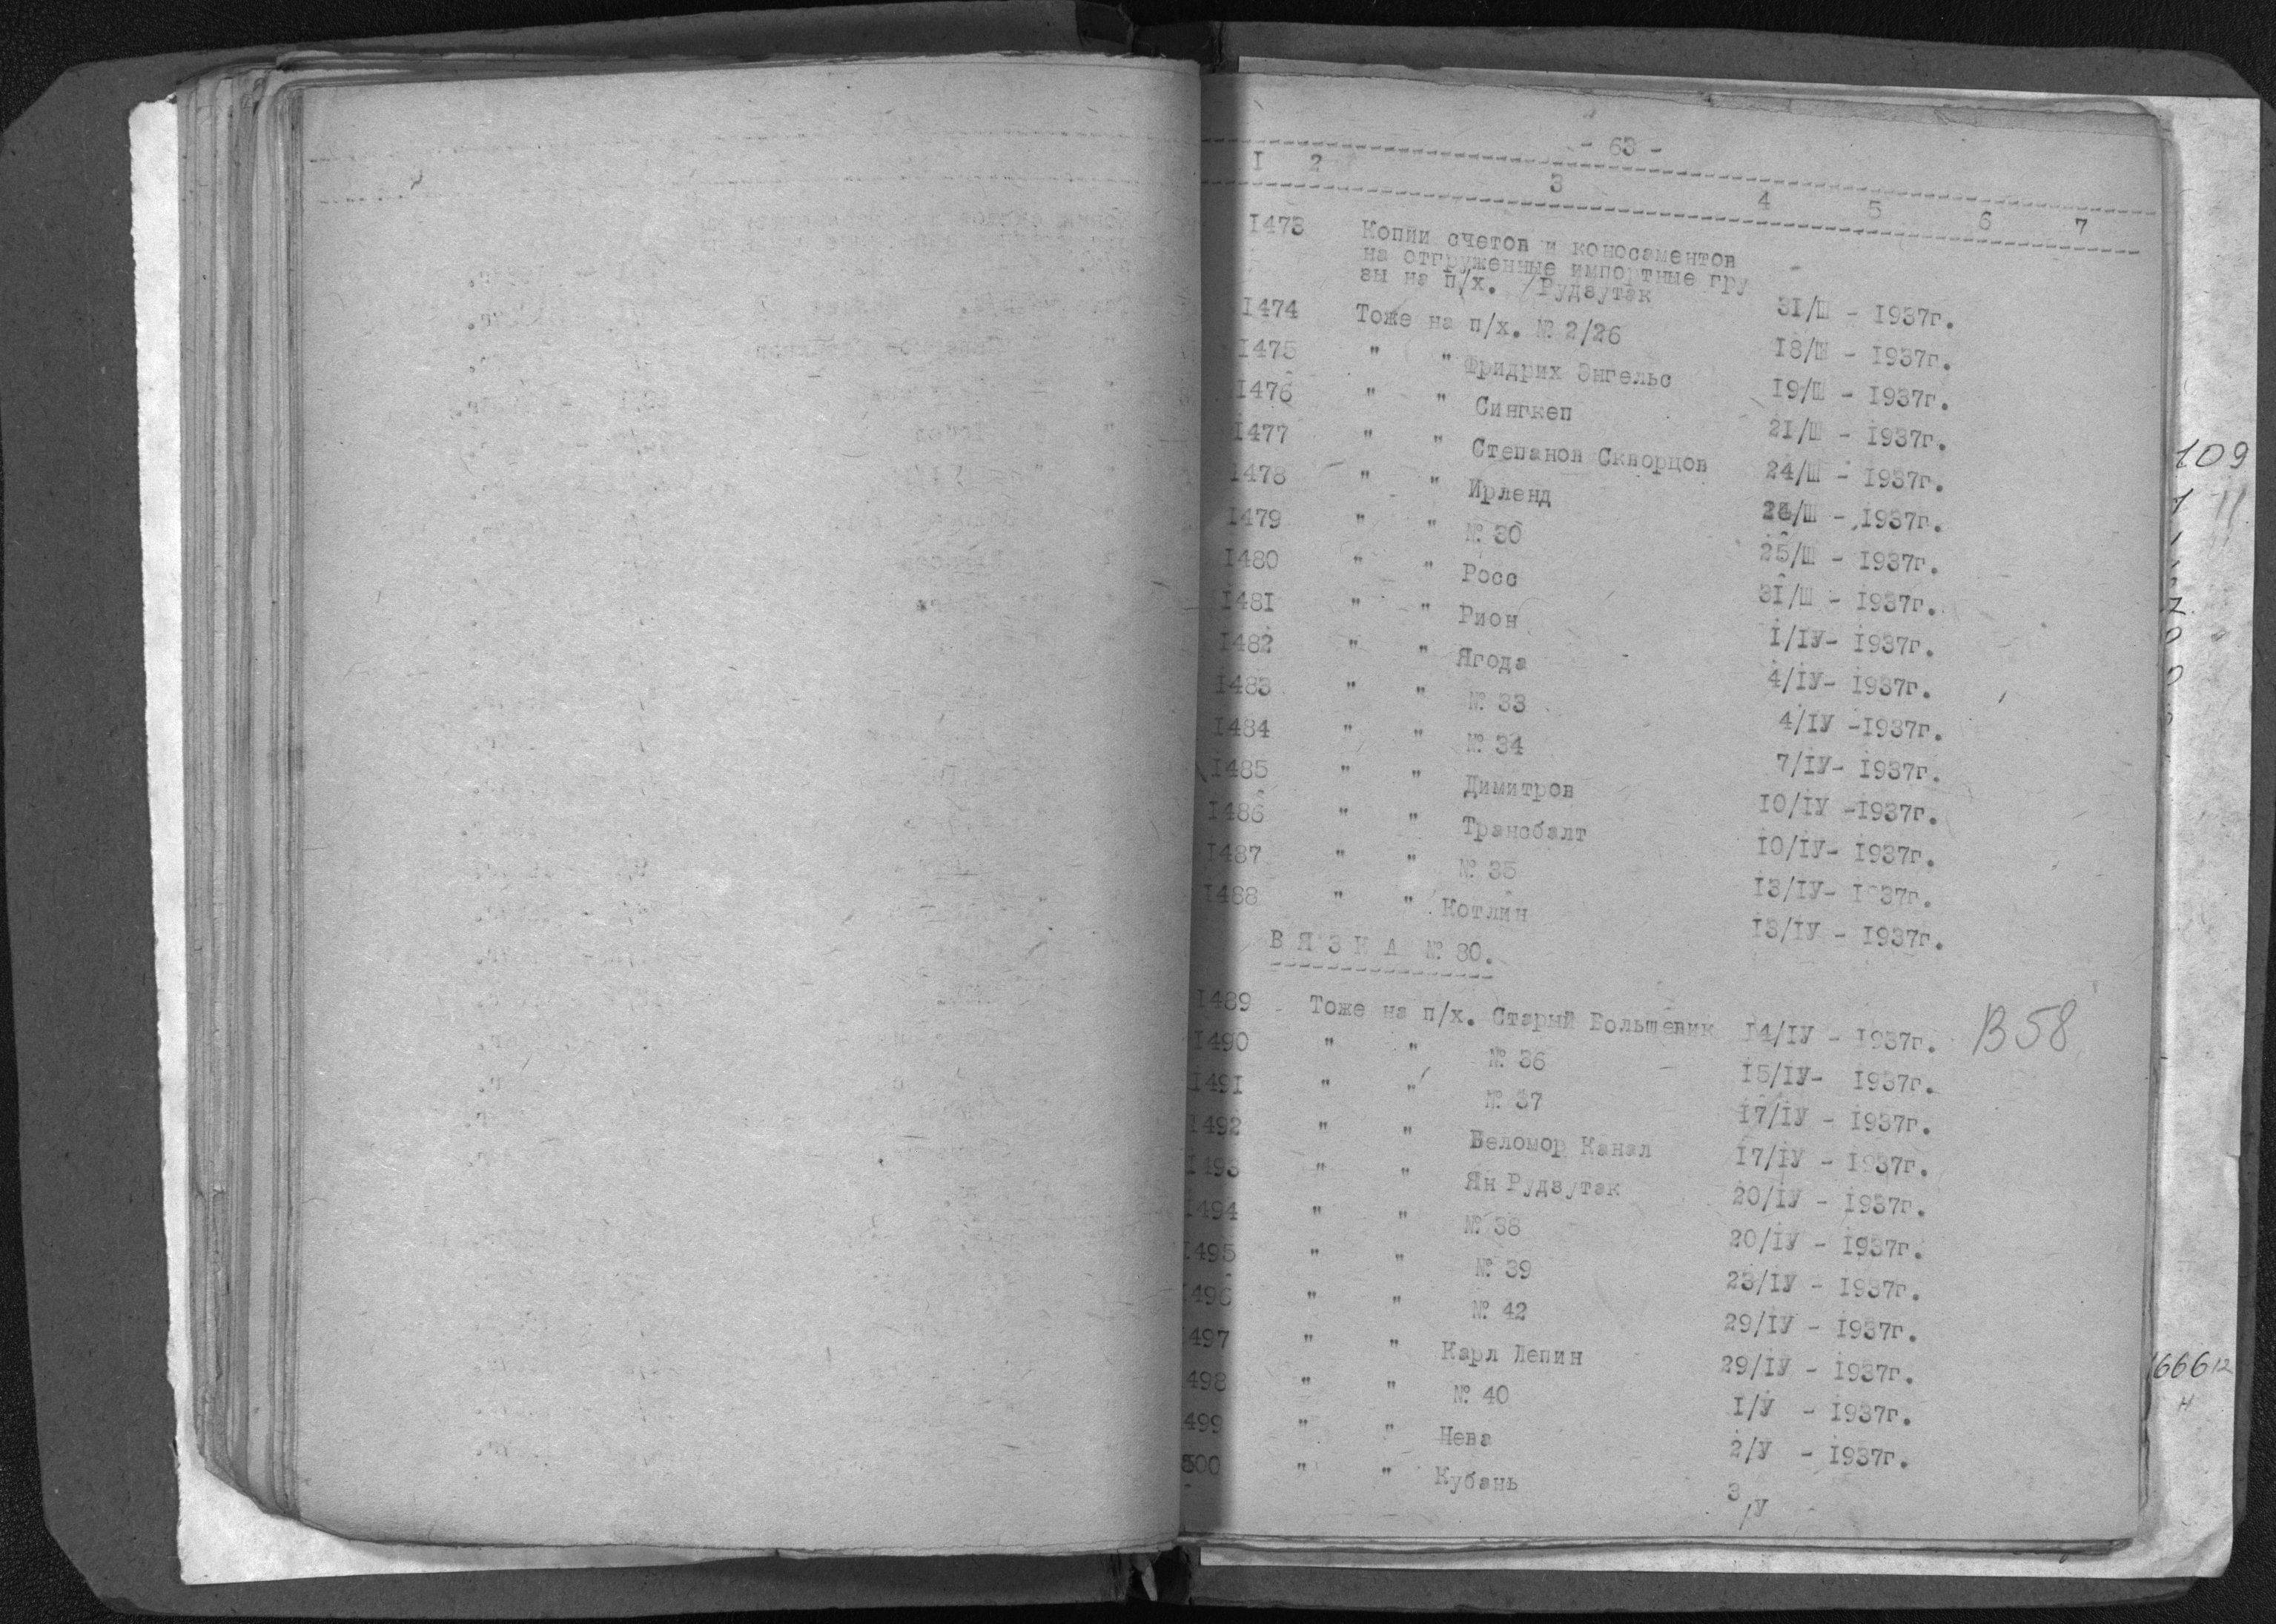 - 63 -
I 2 3 4 5 6 7
I473 Копии счетов и коносаментов
на отгруженные импортные гру
зы на п/х. /Рудзутак 31/Ш - 1937г.
I474 Тоже на п/х. № 2/26 18/Ш - 1937г.
I475 " " Фридрих Энгельс 19/Ш - 1937г.
I476 " " Сингкеп 21/Ш - 1937г.
I477 " " Степанов Скворцов 24/Ш - 1937г.
I478 " " Ирленд /Ш - 1937г.
I479 " " № 30 25/Ш - 1937г.
I480 " " Росс 31/Ш - 1937г.
I481 " " Рион I/IУ- 1937г.
I482 " " Ягода 4/IУ- 1937г.
I483 " " № 33 4/IУ -1937г.
I484 " " № 34 7/IУ- 1937г.
I485 " " Димитров 10/IУ -1937г.
I486 " " Трансбалт 10/IУ- 1937г.
I487 " " № 35 13/IУ- 1937г.
I488 " " Котлин 13/IУ - 1937г.
В Я З К А № 80.
I489 Тоже на п/х. Старый Большевик 14/IУ - 1937г. В 58
I490 " " № 36 15/IУ- 1937г.
I491 " " № 37 17/IУ - 1937г.
I492 " " Беломор Канал 17/IУ - 1937г.
I493 " " Ян Рудзутак 20/IУ - 1937г.
I494 " " № 38 20/IУ - 1937г.
I495 " " № 39 23/IУ - 1937г.
496 " " № 42 29/IУ - 1937г.
497 " " Карл Лепин 29/IУ - 1937г.
498 " " № 40 I/У - 1937г.
499 " " Нева 2/У - 1937г.
500 " " Кубань 3/У
109